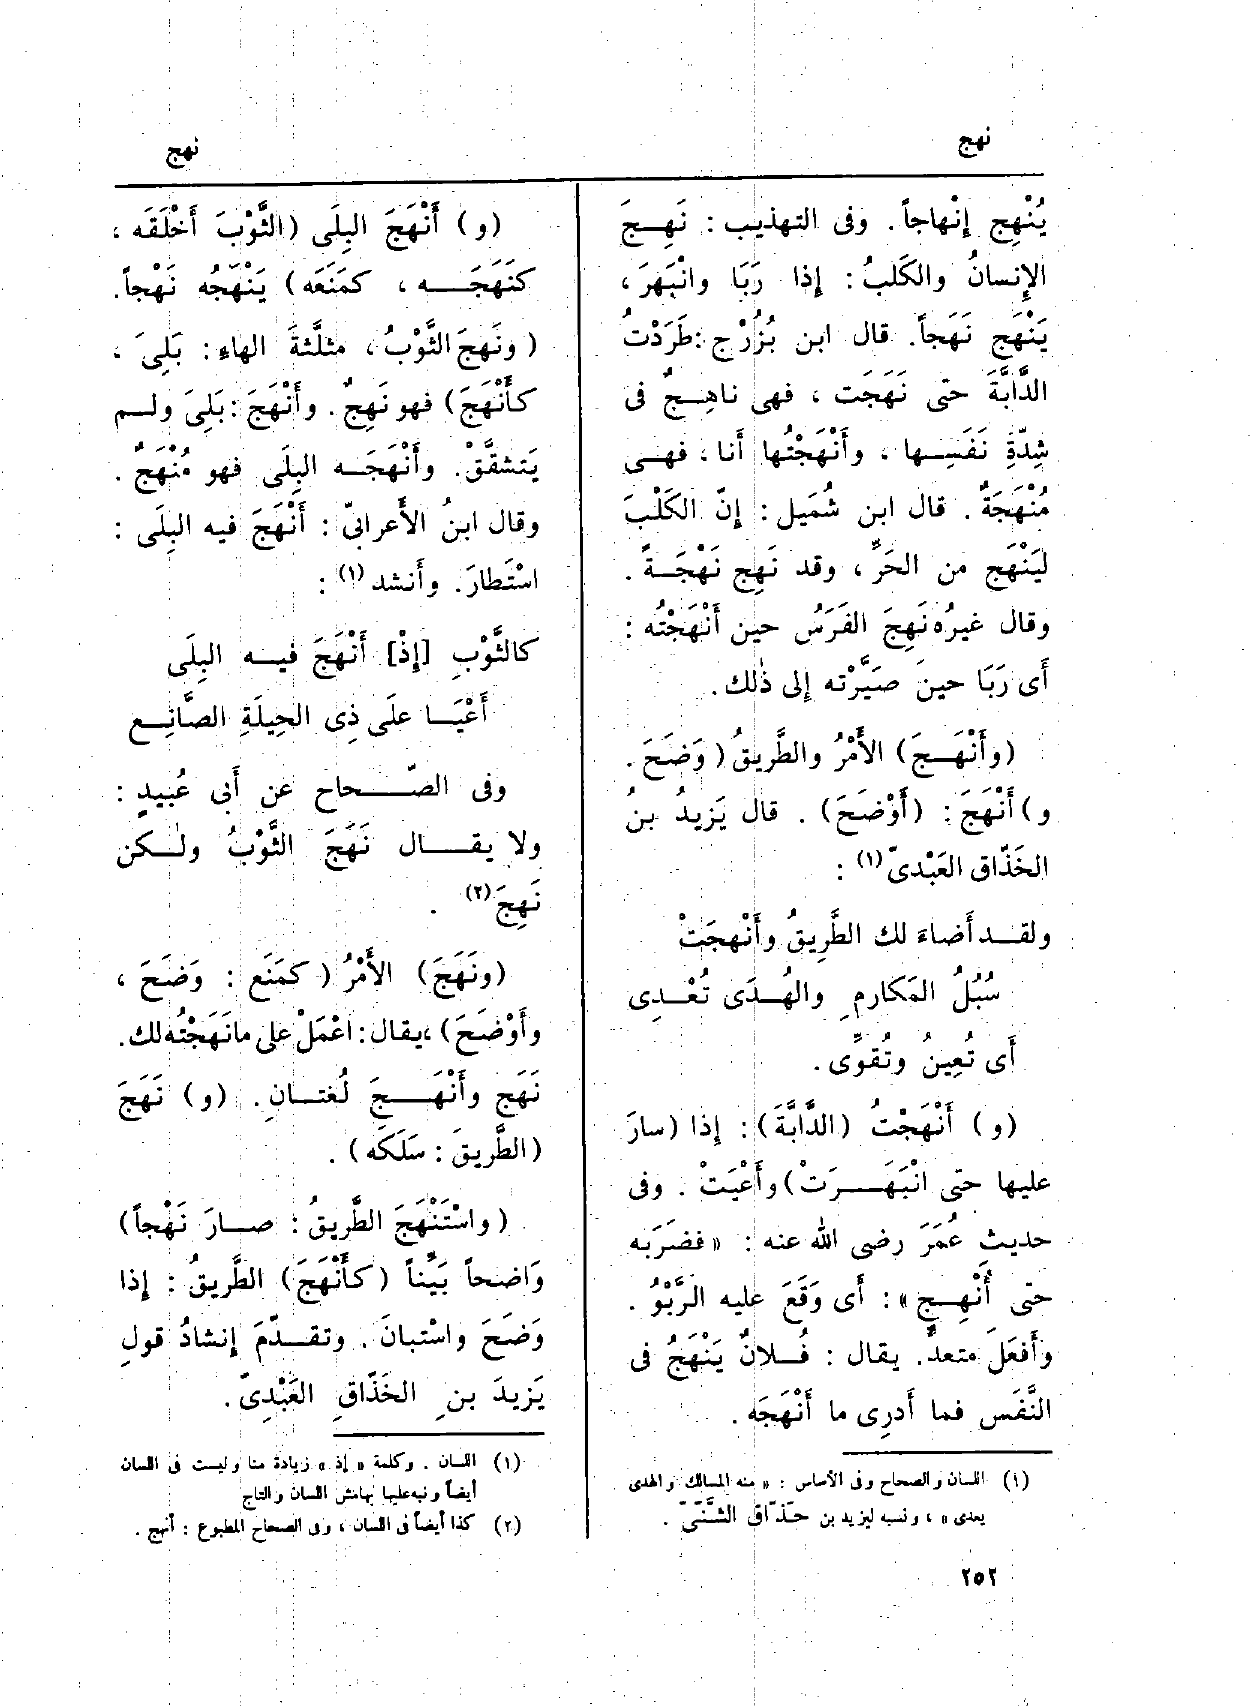 نهج
نهج
يُنْهِج إِنْهاجاً. وفى التهذيب: نَهِجَ
الإِنسانُ والكَلبُ: إِذا رَبَا وانْبَهَرَ،
يَنْهَج نَهَجاً. قال ابن بُزُرْج: طَرَدْتُ
الدّابَّةَ حتى نَهَجَت، فهى ناهِجٌ فى
شِدّةِ نَفَسِها، وأَنْهَجْتُها أَنا، فهى
مُنْهَجَةٌ. قال ابن شُمَيل: إِنّ الكَلْبَ
لَيَنْهَج من الحَرِّ، وقد نَهِج نَهْجَةً.
وقال غيرُه نَهِجَ الفَرَسُ حين أَنْهَجْتُه:
أَى رَبَا حينَ صَيَّرْته إِلى ذٰلك.
(وأَنْهَجَ) الأَمْرُ والطَّريقُ (وَضَحَ.
و) أَنْهَجَ: (أَوْضَحَ). قال يَزيدُ بنُ
الخَذّاق العَبْدىّ(١):
ولقد أَضاءَ لك الطَّرِيقُ وأَنْهجَتْ
سُبُلُ المَكارمِ والهُدَى تُعْدِى
أَى تُعِينُ وتُقوِّى.
(و) أَنْهَجْتُ (الدَّابَّةَ): إِذا (سارَ
عليها حتّى انْبَهَرَتْ) وأَعْيَتْ. وفى
حديثِ عُمَرَ رضى الله عنه: «فضَرَبه
حتى أُنْهِجَ»: أَى وَقَعَ عليه الرَّبْوُ.
وأَفعَلَ متعدٍّ. يقال: فُلانٌ يَنْهَجُ فى
النَّفَس فما أَدرِى ما أَنْهَجَه.
(١) اللسان والصحاح وفى الأساس: «منه المسالك والهدى
يعدى»، ونسبه ليزيد بن حَذّاق الشَّنّىّ.
٢٥٢
(و) أَنْهَجَ البِلَى (الثَّوْبَ أَخْلَقَه،
كنَهَجَه، كمَنَعَه) يَنْهَجُه نَهْجاً.
(ونَهجَ الثَّوْبُ، مثلَّثةَ الهاءِ: بَلِىَ،
كأَنْهَجَ) فهو نَهِجٌ. وأَنْهَجَ: بَلِىَ ولم
يَتشقَّقْ. وأَنْهَجَه البِلَى فهو مُنْهَجٌ.
وقال ابنُ الأَعرابىّ: أَنْهَجَ فيه البِلَى:
اسْتَطارَ. وأَنشد(١):
كالثَّوْبِ [إِذْ] أَنْهَجَ فيه البِلَى
أَعْيَا علَى ذِى الحِيلَةِ الصَّانِع
وفى الصّحاح عن أَبى عُبيدٍ:
ولا يقال نَهَجَ الثَّوْبُ ولكن
نَهِجَ(٢).
(ونَهَجَ) الأَمْرُ (كمَنَع: وَضَحَ،
وأَوْضَحَ)، يقال: اعْمَلْ على ما نَهَجْتُه لك.
نَهَج وأَنْهَجَ لُغتانِ. (و) نَهَجَ
(الطَّريقَ: سَلَكَه).
(واسْتَنْهَجَ الطَّريقُ: صارَ نَهْجاً)
وَاضحاً بَيِّناً (كأَنْهَجَ) الطَّريقُ: إِذا
وَضَحَ واسْتبانَ. وتقدّمَ إِنشادُ قولِ
يَزيدَ بنِ الخَذّاقِ العَبْدِىّ.
(١) اللسان. وكلمة «إذ» زيادة منا وليست فى اللسان
أيضاً ونبه عليها بهامش اللسان والتاج
(٢) كذا أيضاً فى اللسان، وفى الصحاح المطبوع: أنهج.